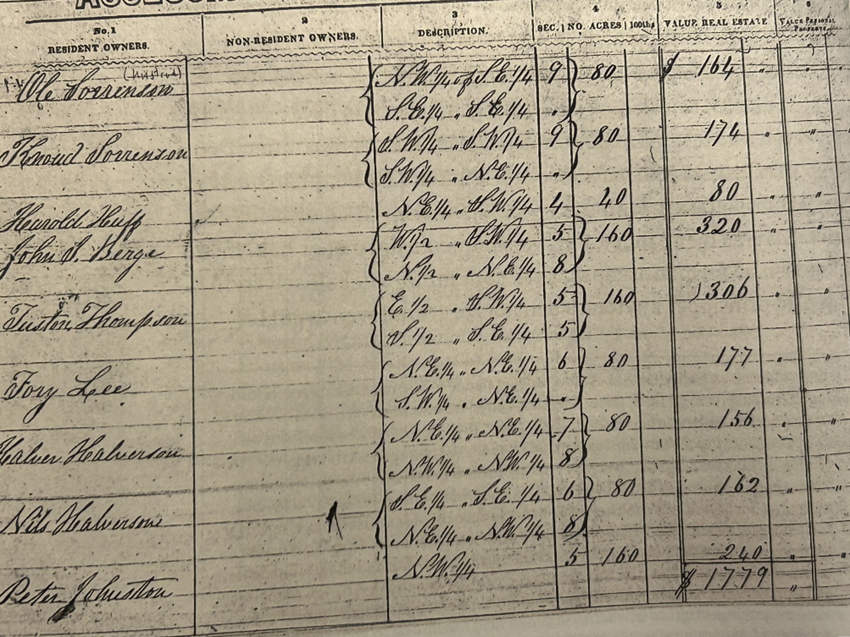 No. 1 RESIDENT OWNERS. 2 NON-RESIDENT OWNERS. 3 DESCRIPTION. SEC. 4 NO. ACRES 100ths 5 VALUE REAL ESTATE 6 VALUE PERSONAL PROPERTY.
Ole Sorrenson N.W.1/4 of S.E.1/4 9 80 $ 164
S.E.1/4 " S.E.1/4 "
Knoud Sorrenson S.W.1/4 " S.W.1/4 9 80 174 " "
S.W.1/4 " N.E.1/4 "
Harold Huff N.E.1/4 " S.W.1/4 4 40 80 " "
John S. Berge W.1/2 " S.W.1/4 5 160 320 " "
N.1/2 " N.E.1/4 8
Tuston Thompson E.1/2 " S.W.1/4 5 160 306 " "
S.1/2 " S.E.1/4 5
Tory Lee N.E.1/4 " N.E.1/4 6 80 177 " "
S.W.1/4 " N.E.1/4 "
Halver Halverson N.E.1/4 " N.E.1/4 7 80 156 " "
N.W.1/4 " N.W.1/4 8
Nils Halverson S.E.1/4 " S.E.1/4 6 80 162 " "
N.E.1/4 " N.W.1/4 8
Peter Johnston N.W.1/4 5 160 240 " "
$ 1779 "